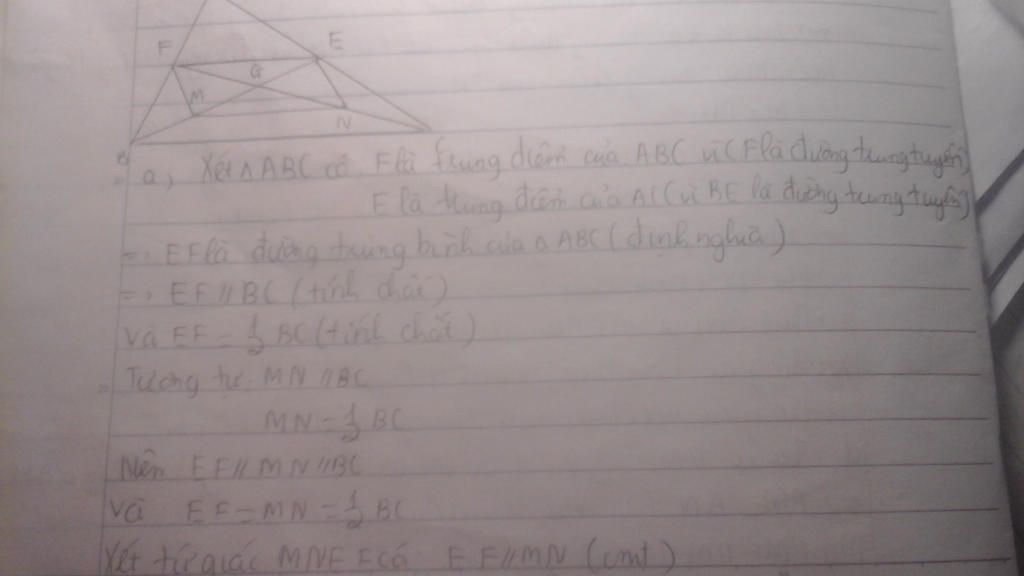 F E
G
M
N
B
a, Xét △ ABC có F là trung điểm của ABC vì (F là đường trung tuyến)
E là trung điểm của AC (vì BE là đường trung tuyến)
=> EF là đường trung bình của △ ABC (định nghĩa)
=> EF // BC (tính chất)
Và EF = 1/2 BC (tính chất)
Tương tự MN // BC
MN = 1/2 BC
Nên EF // MN // BC
Và EF = MN = 1/2 BC
Xét tứ giác MNEF có EF // MN (cmt)